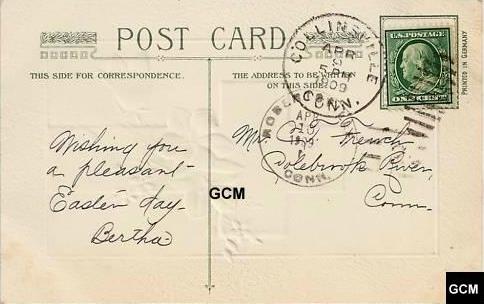 POST CARD
THIS SIDE FOR CORRESPONDENCE.
THE ADDRESS TO BE WRITTEN
ON THIS SIDE
PRINTED IN GERMANY
U.S. POSTAGE
ONE CENT
COLLINSVILLE
APR
1909
CONN.
APR
10
1909
CONN.
Wishing you
a pleasant
Easter day.
Bertha
Mr. French
Colebrook River,
Conn.
GCM
GCM